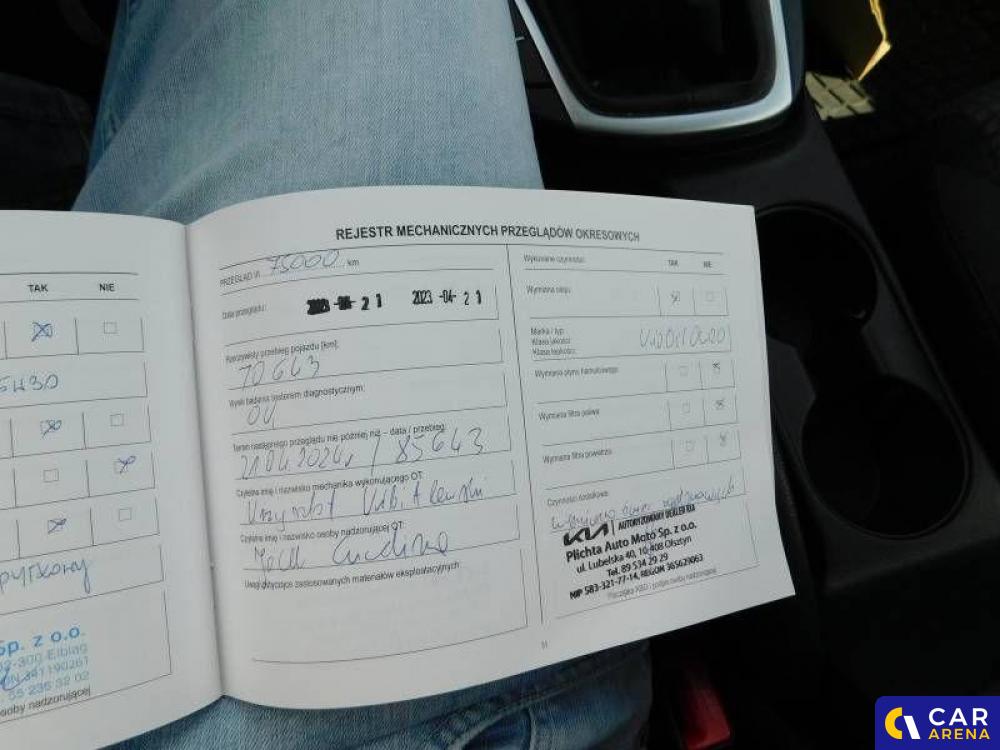 TAK NIE
5W30
Sp. z o.o.
02-300 Elbląg
341190261
55 236 32 02
osoby nadzorującej
REJESTR MECHANICZNYCH PRZEGLĄDÓW OKRESOWYCH
PRZEGLĄD VI 75000 km
Data przeglądu: 2023-04-21
Rzeczywisty przebieg pojazdu [km]:
70643
Wynik badania testerem diagnostycznym:
OK
Termin następnego przeglądu nie później niż – data / przebieg:
21.04.2024r / 85643
Czytelne imię i nazwisko mechanika wykonującego OT:
Krzysztof
Czytelne imię i nazwisko osoby nadzorującej OT:
Uwagi dotyczące zastosowanych materiałów eksploatacyjnych
Wykonane czynności: TAK NIE
Wymiana oleju
Marka / typ:
Klasa jakości:
Klasa lepkości:
0W20
Wymiana płynu hamulcowego
Wymiana filtra paliwa
Wymiana filtra powietrza
Czynności dodatkowe:
KIA AUTORYZOWANY DEALER KIA
Plichta Auto Moto Sp. z o.o.
ul. Lubelska 40, 10-408 Olsztyn
Tel. 89 534 29 29
NIP 583-321-77-14, REGON 365629063
Pieczątka ASO i podpis osoby nadzorującej
CAR
ARENA